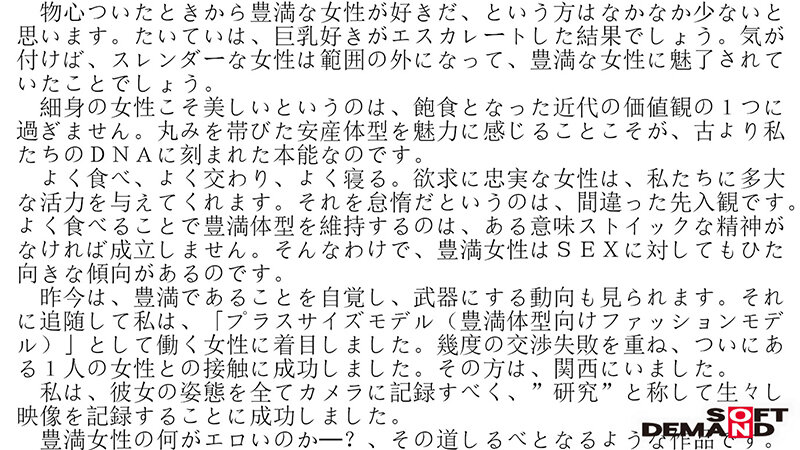 物心ついたときから豊満な女性が好きだ、という方はなかなか少ないと
思います。たいていは、巨乳好きがエスカレートした結果でしょう。気が
付けば、スレンダーな女性は範囲の外になって、豊満な女性に魅了されて
いたことでしょう。
　細身の女性こそ美しいというのは、飽食となった近代の価値観の１つに
過ぎません。丸みを帯びた安産体型を魅力に感じることこそが、古より私
たちのＤＮＡに刻まれた本能なのです。
　よく食べ、よく交わり、よく寝る。欲求に忠実な女性は、私たちに多大
な活力を与えてくれます。それを怠惰だというのは、間違った先入観です。
よく食べることで豊満体型を維持するのは、ある意味ストイックな精神が
なければ成立しません。そんなわけで、豊満女性はＳＥＸに対してもひた
向きな傾向があるのです。
　昨今は、豊満であることを自覚し、武器にする動向も見られます。それ
に追随して私は、「プラスサイズモデル（豊満体型向けファッションモデ
ル）」として働く女性に着目しました。幾度の交渉失敗を重ね、ついにあ
る１人の女性との接触に成功しました。その方は、関西にいました。
　私は、彼女の姿態を全てカメラに記録すべく、”研究”と称して生々し
映像を記録することに成功しました。
　豊満女性の何がエロいのか―？、その道しるべとなるような作品です。
SOFT
DEMAND